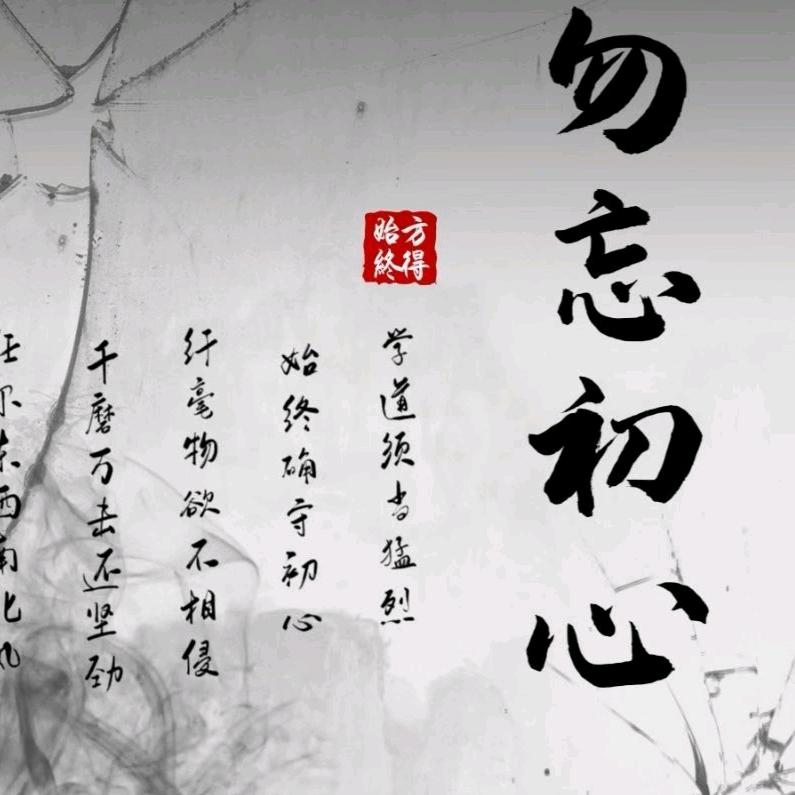 勿忘初心
方得
始終
学道须当猛烈
始终确守初心
纤毫物欲不相侵
千磨万击还坚劲
任尔东西南北风